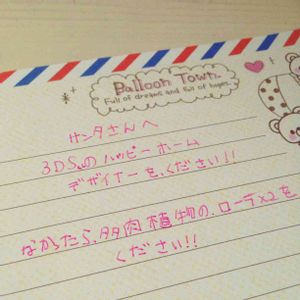 Balloon Town.
Full of dreams and full of hopes.
サンタさんへ
3DSのハッピーホーム
デザイナーをください!!
なかったら、多肉植物の、ローラ×2を
ください!!